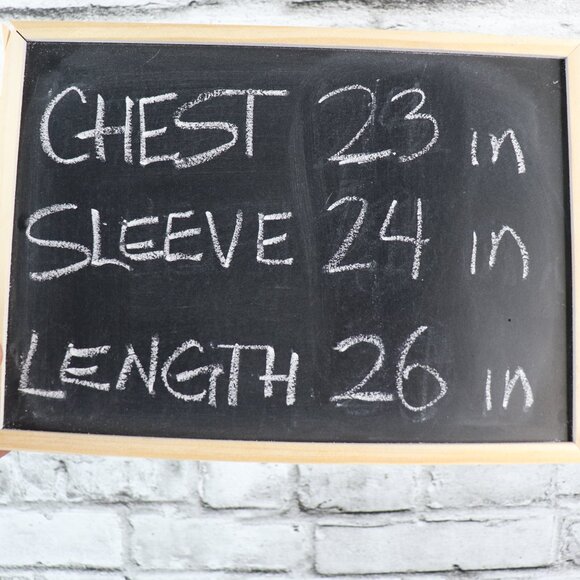 CHEST 23 in
SLEEVE 24 in
LENGTH 26 in